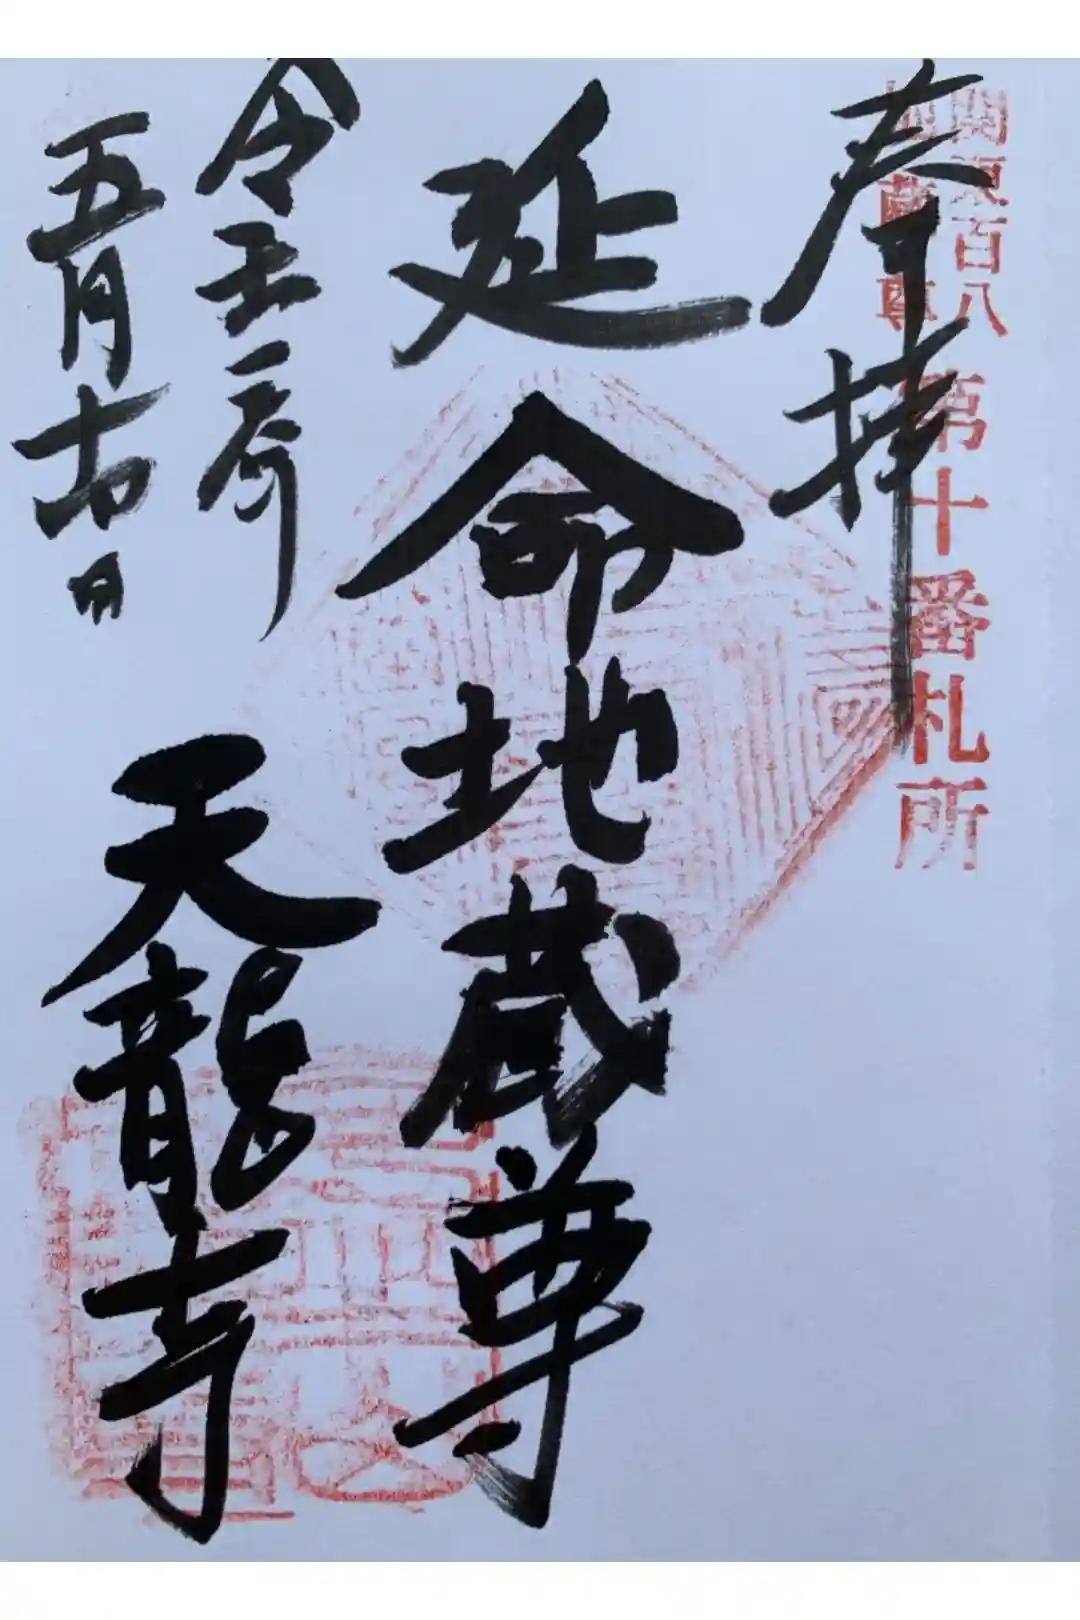 奉拝
関東百八
地蔵尊
第十番札所
延命地蔵尊
五月
日
天龍寺